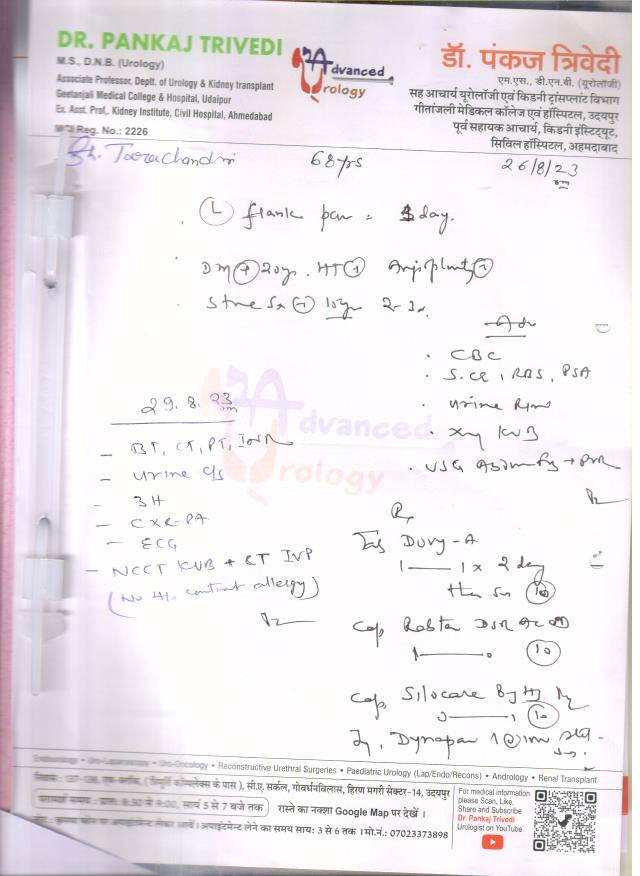 DR. PANKAJ TRIVEDI
M.S., D.N.B. (Urology)
Associate Professor, Deptt. of Urology & Kidney transplant
Geetanjali Medical College & Hospital, Udaipur
Ex. Asst. Prof., Kidney Institute, Civil Hospital, Ahmedabad
MCI Reg. No.: 2226
Advanced
Urology
डॉ. पंकज त्रिवेदी
एम.एस., डी.एन.बी. (यूरोलॉजी)
सह आचार्य यूरोलॉजी एवं किडनी ट्रांसप्लांट विभाग
गीतांजली मेडिकल कॉलेज एवं हॉस्पिटल, उदयपुर
पूर्व सहायक आचार्य, किडनी इंस्टिट्यूट,
सिविल हॉस्पिटल, अहमदाबाद
Sh. Tarachandri 68 yrs 26/8/23
L flank pain = day.
DM + 20 yr. HT +
Adv
CBC
S.CR, RBS, PSA
Urine
Xray KUB
USG
29.8.23
BT, CT, PT, INR
Urine C/S
3H
CXR-PA
ECG
NCCT KUB + CT IVP
(No H/o contrast allergy)
Advanced
Urology
Rx
Tab Duvy-A
1 — 1 x 2 day
10
Cap Rabter DSR
1 — 0 10
Cap Silocare
0 — 1 10
Dynapar 1 im stat
Endourology • Uro-Laparoscopy • Uro-Oncology • Reconstructive Urethral Surgeries • Paediatric Urology (Lap/Endo/Recons) • Andrology • Renal Transplant
सी.ए. सर्कल, गोवर्धनविलास, हिरण मगरी सेक्टर-14, उदयपुर
सायं 5 से 7 बजे तक रास्ते का नक्शा Google Map पर देखें ।
अपाईंटमेन्ट लेने का समय सायः 3 से 6 तक । मो.नं.: 07023373898
For medical information
please Scan, Like,
Share and Subscribe
Dr. Pankaj Trivedi
Urologist on YouTube